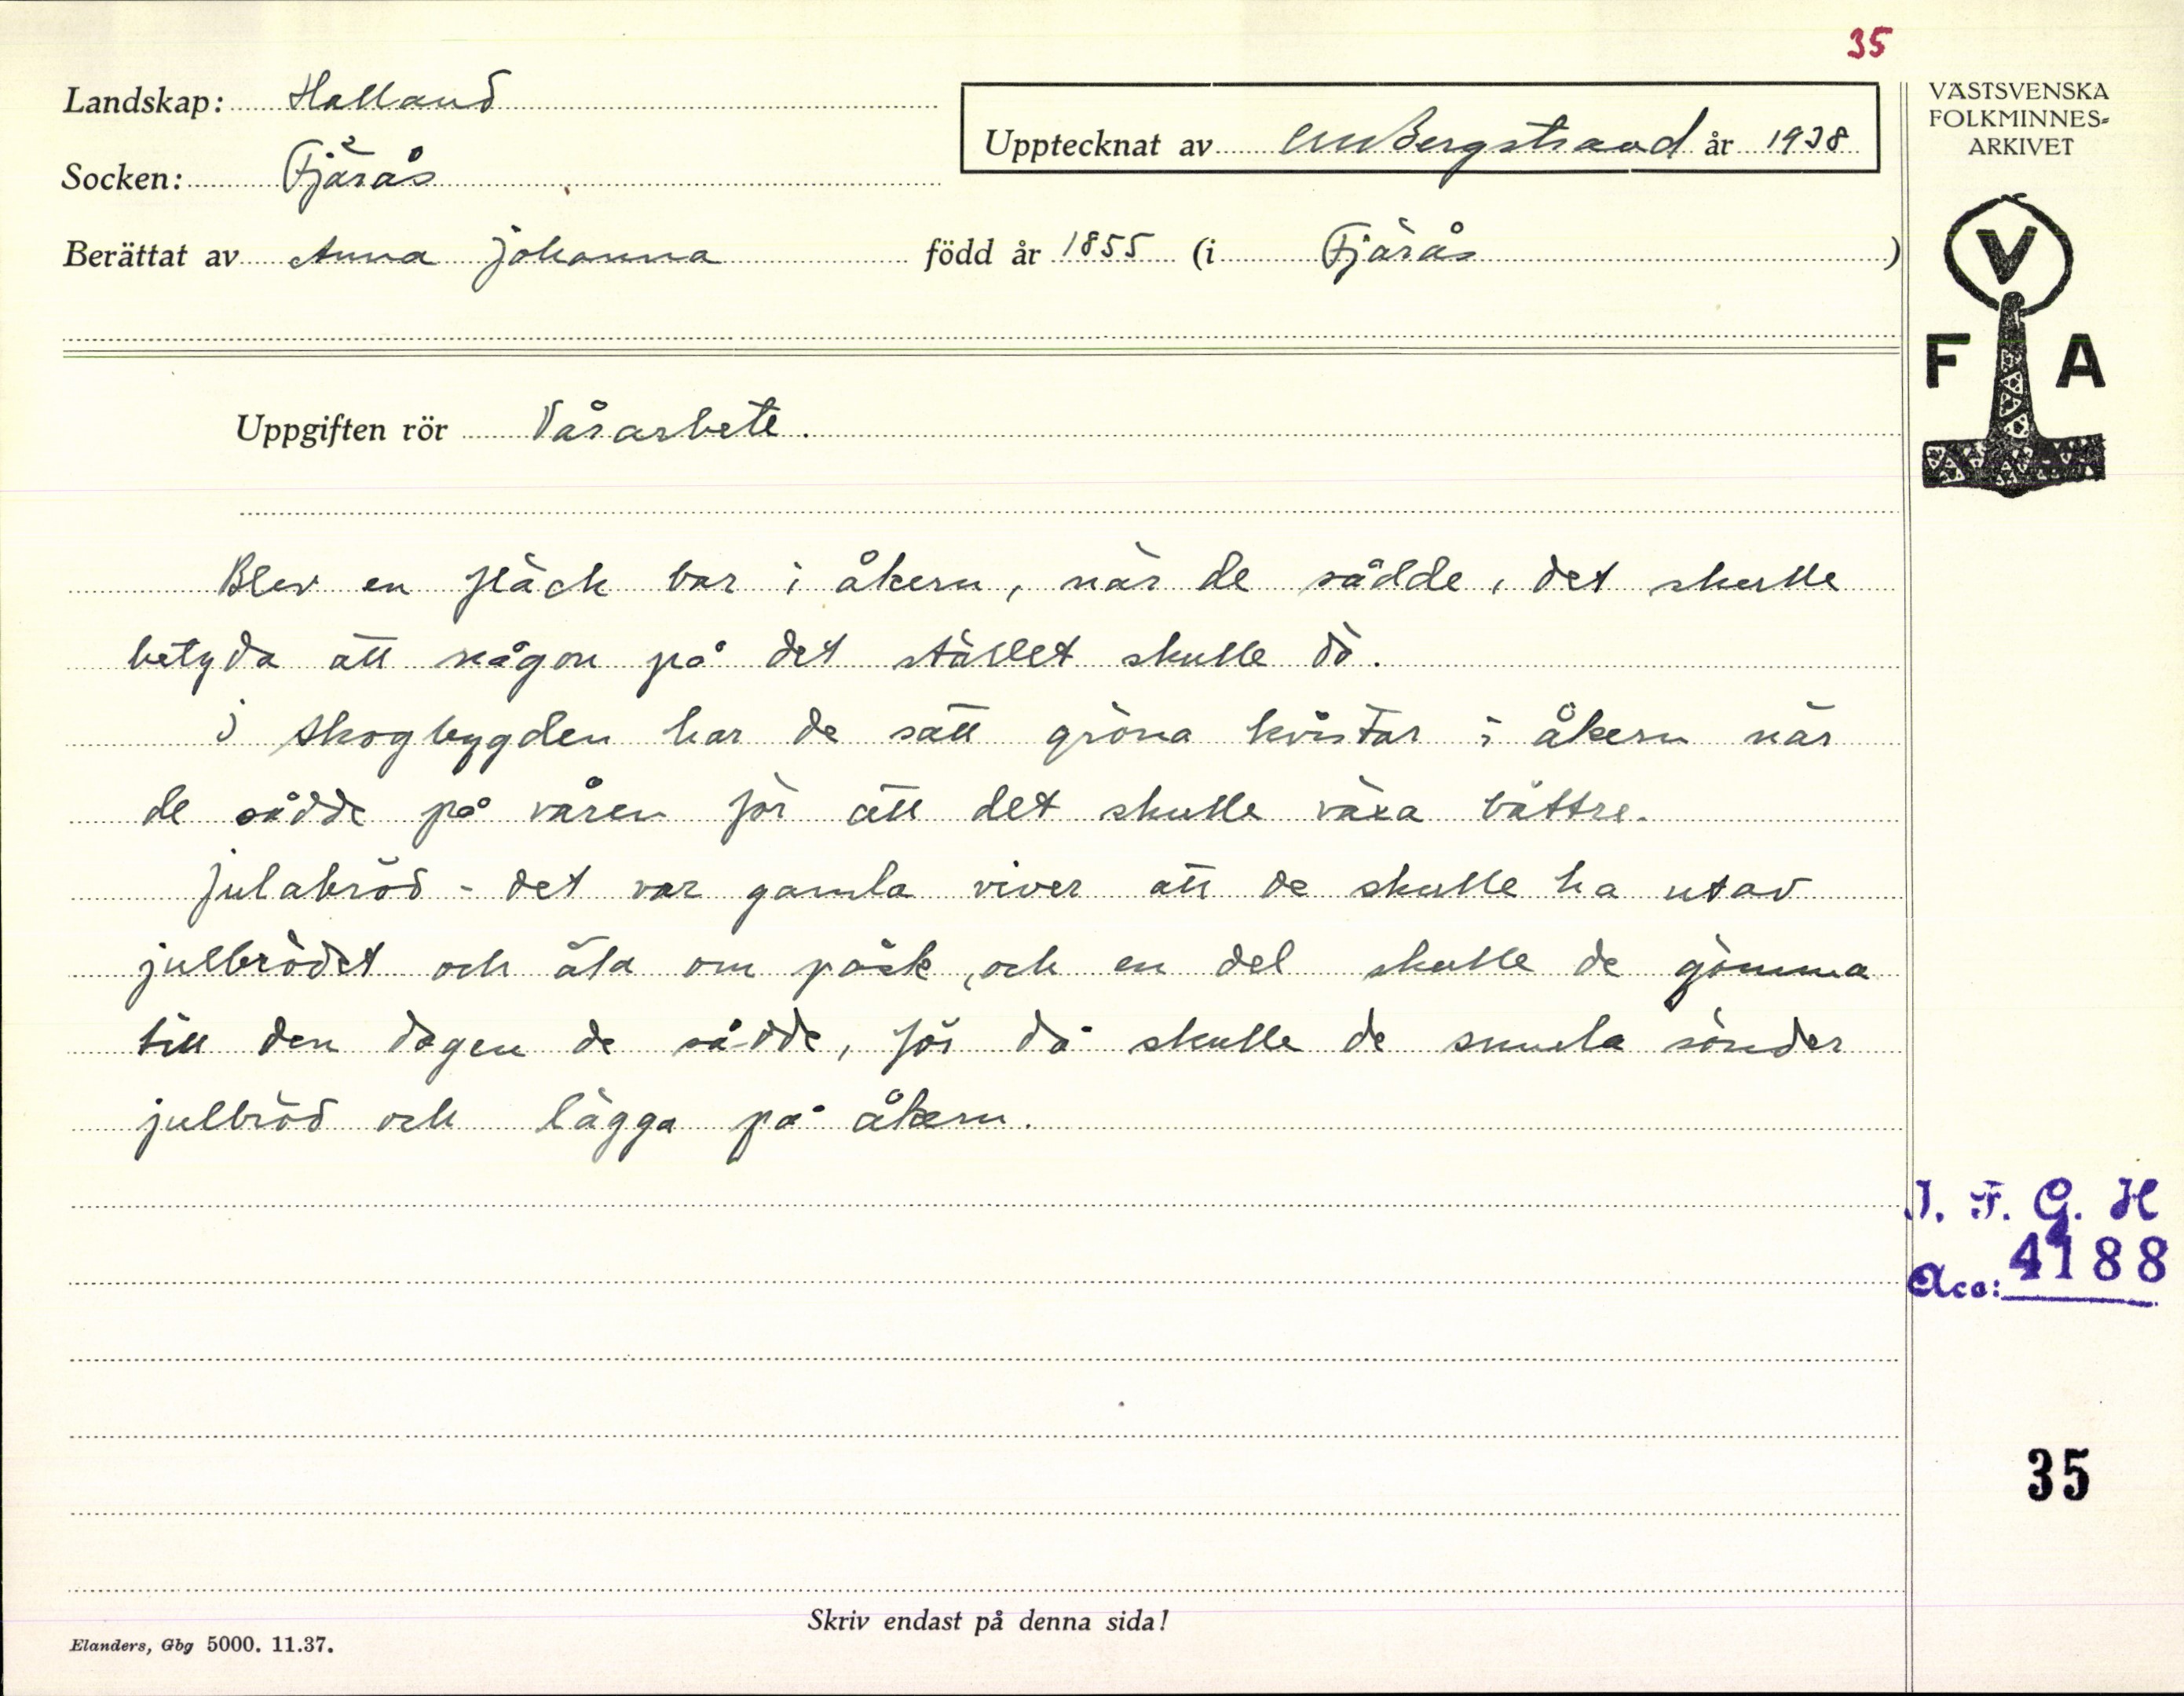 35
Landskap: Halland
Socken: Fjärås
Upptecknat av CM Bergstrand år 1938
Berättat av Anna Johanna född år 1855 (i Fjärås )
VÄSTSVENSKA
FOLKMINNES-
ARKIVET
V
F A
Uppgiften rör Vårarbete.
Blev en fläck bar i åkern, när de sådde, det skulle
betyda att någon på det stället skulle dö.
I skogbygden har de satt gröna kvistar i åkern när
de sådde på våren för att det skulle växa bättre.
Julabröd - det var gamla viver att de skulle ha utav
julbrödet och äta om påsk, och en del skulle de gömma
till den dagen de sådde, för då skulle de smula sönder
julbröd och lägga på åkern.
I. F. G. H
Acc: 4188
35
Skriv endast på denna sida!
Elanders, Gbg 5000. 11.37.